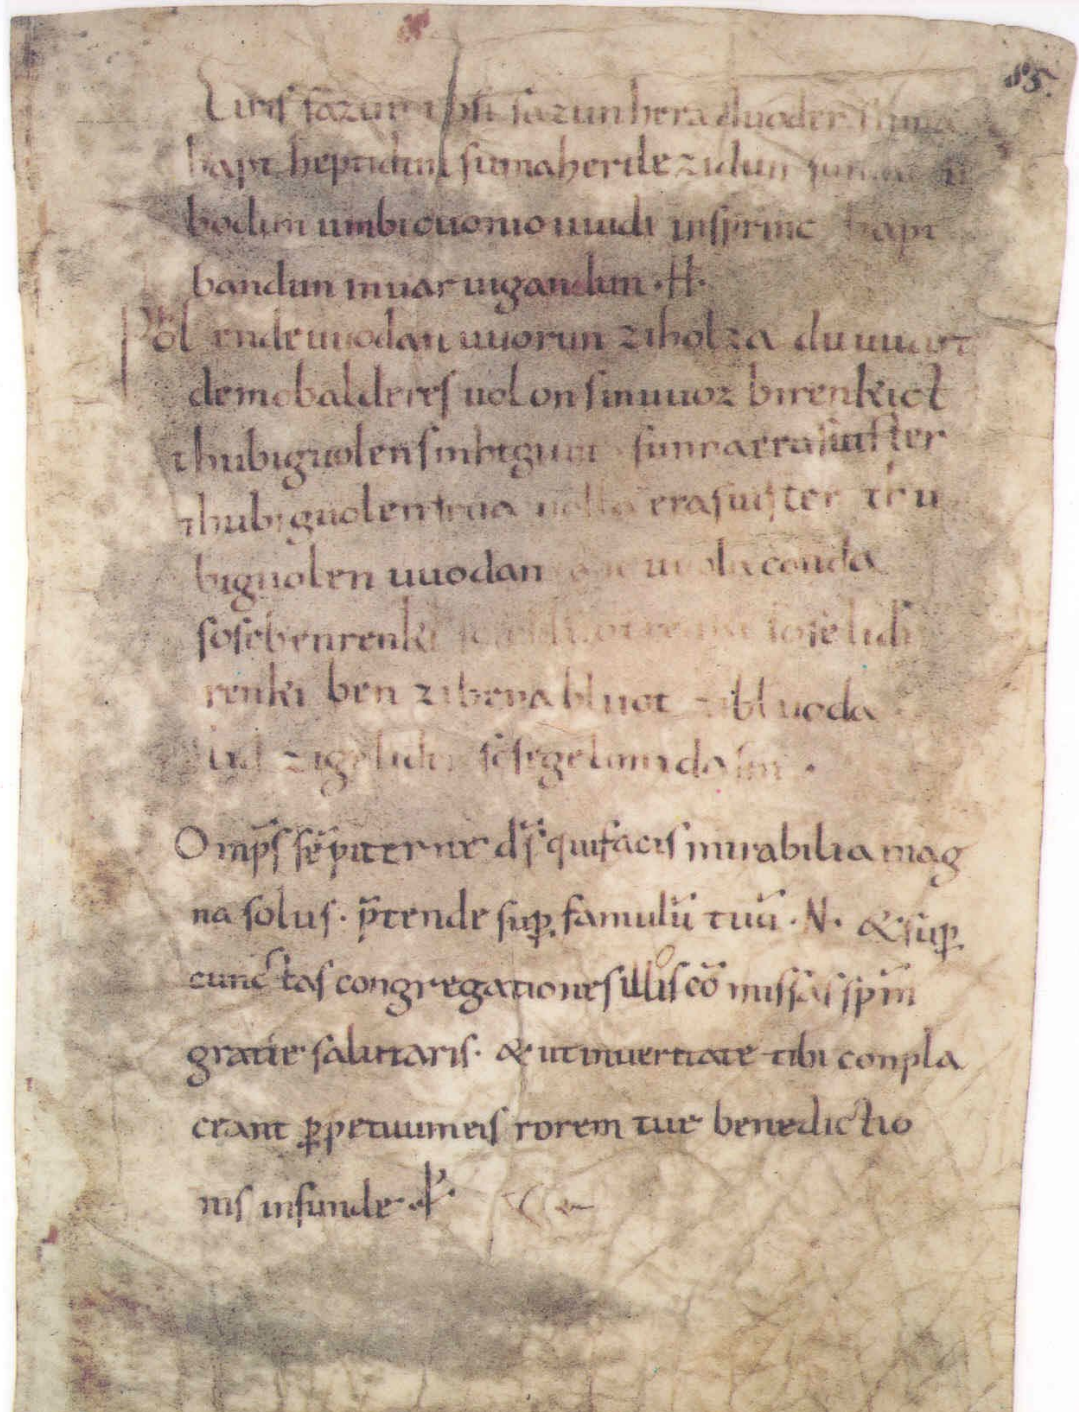 85.
Eiris sazun idisi sazun hera duoder suma
hapt heptidun suma heri lezidun suma clu
bodun umbi cuonio uuidi insprinc hapt
bandun inuar uigandun · H ·
Phol ende uuodan uuorun zi holza du uuart
demo balderes uolon sin uuoz birenkict
thu biguolen sinhtgunt sunna era suister
thu biguolen friia uolla era suister thu
biguolen uuodan so he uuola conda
sose benrenki sose bluotrenki sose lidi
renki ben zi bena bluot zi bluoda
lid zi geliden sose gelimida sin ·
Omp̄s sēpiterne d̄s qui facis mirabilia mag
na solus · p̄tende sup̱ famulū tuū · N · & sup̱
cunctas congregationes illis cō missas sp̄m
gratie salutaris · & ut in ueritate tibi conpla
ceant p̱petuum eis rorem tue benedictio
nis infunde ·